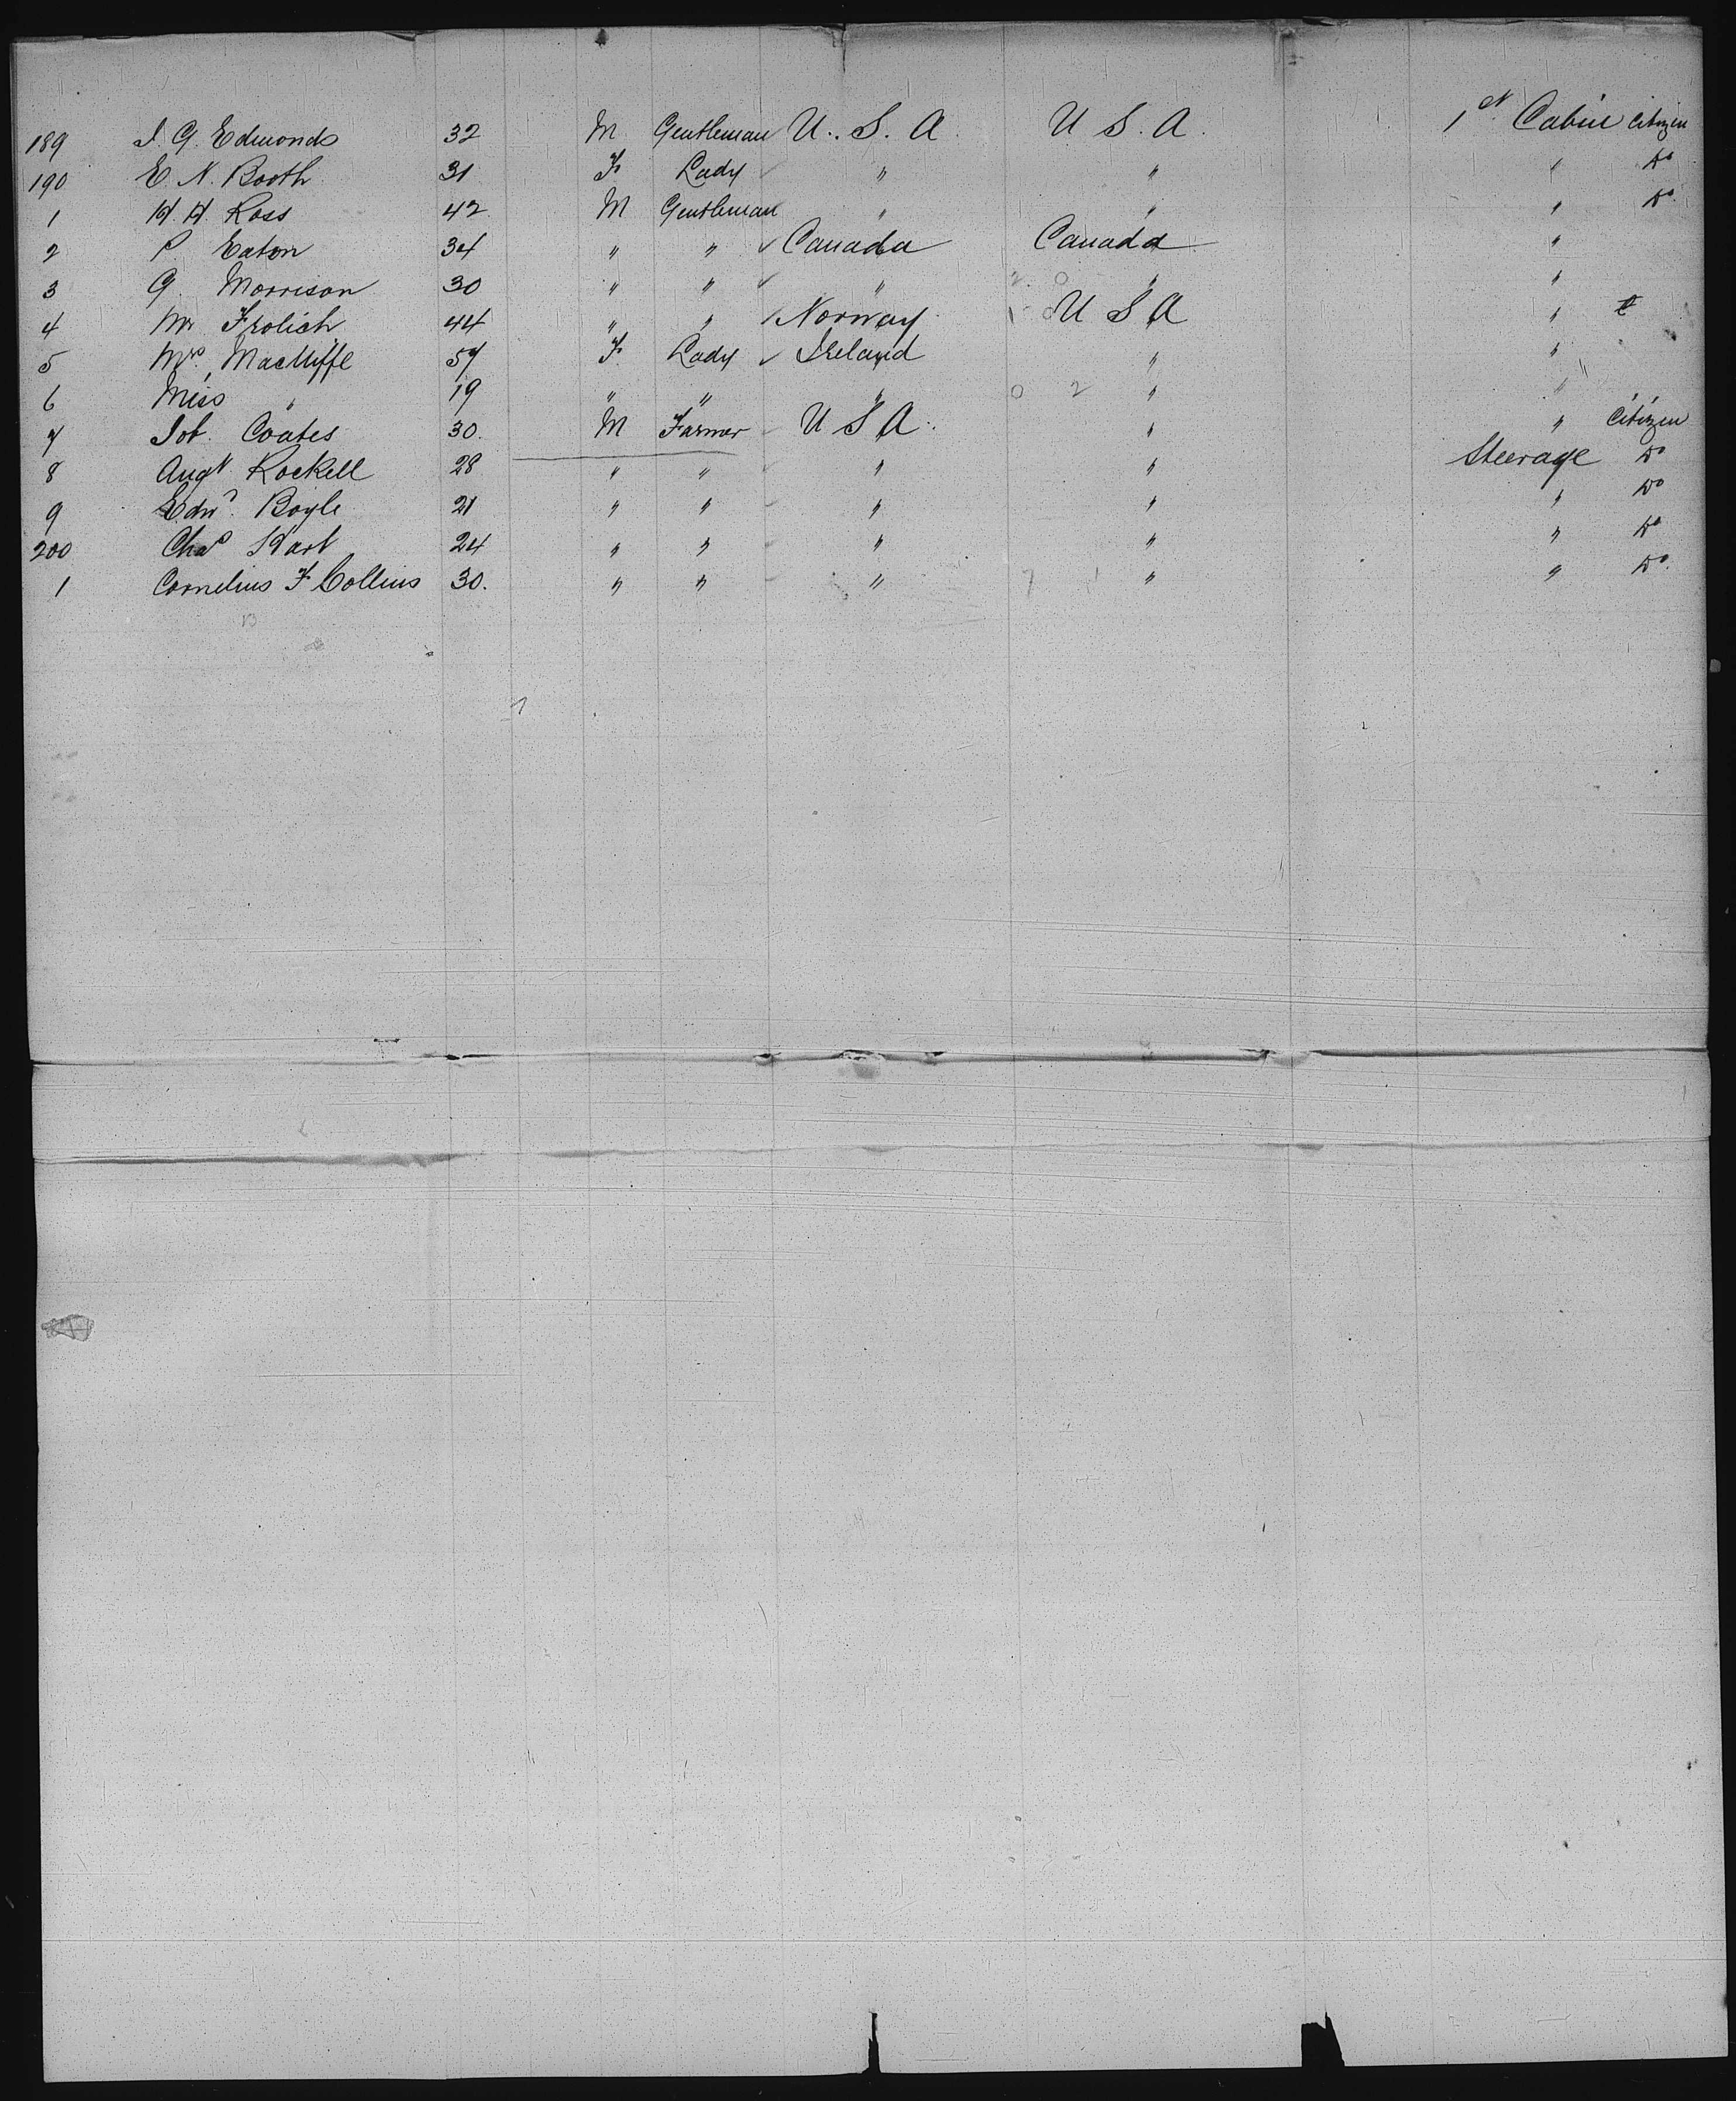 189 J. G. Edmonds 32 M Gentleman U. S. A. U S. A. 1st Cabin Citizen
190 E. N. Booth 31 F Lady " " " Do
1 H. H. Ross 42 M Gentleman " " " Do
2 P. Eaton 34 " " Canada Canada "
3 G. Morrison 30 " " " " "
4 Mr Frolich 44 " " Norway U S A "
5 Mrs MacAliffe 57 F Lady Ireland " "
6 Miss " 19 " " " " "
7 Job. Coates 30. M Farmer U S A. " " Citizen
8 Augt Rockell 28 " " " " Steerage Do
9 Edwd. Boyle 21 " " " " " Do
200 Chas Hart 24 " " " " " Do
1 Cornelius F Collins 30. " " " " " Do.